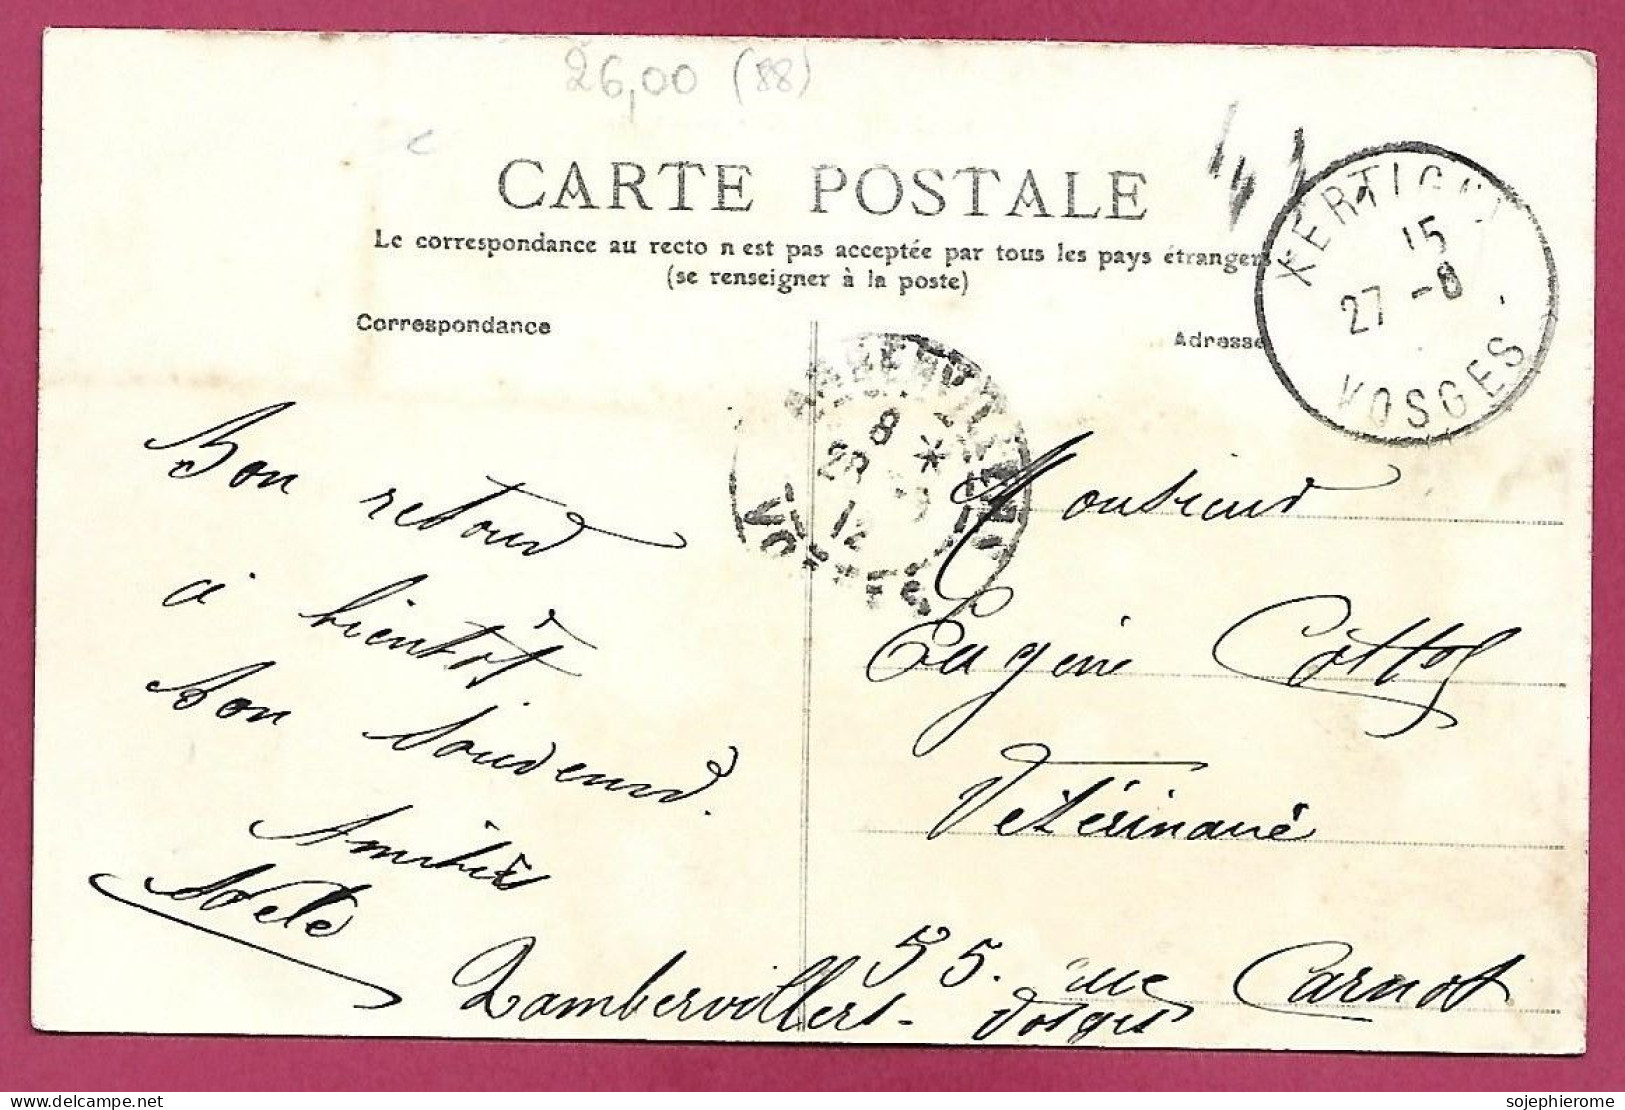 26,00 (88)
CARTE POSTALE
Le correspondance au recto n est pas acceptée par tous les pays étrangers
(se renseigner à la poste)
Correspondance
Adresse
XERTIGNY
15
27 -8
VOSGES
8
28
12
Bon retour
à bientôt
Bon Souvenir.
Amitiés
Monsieur
Eugène
Vétérinaire
55. rue Carnot
Rambervillers - Vosges
delcampe.net
sojephierome